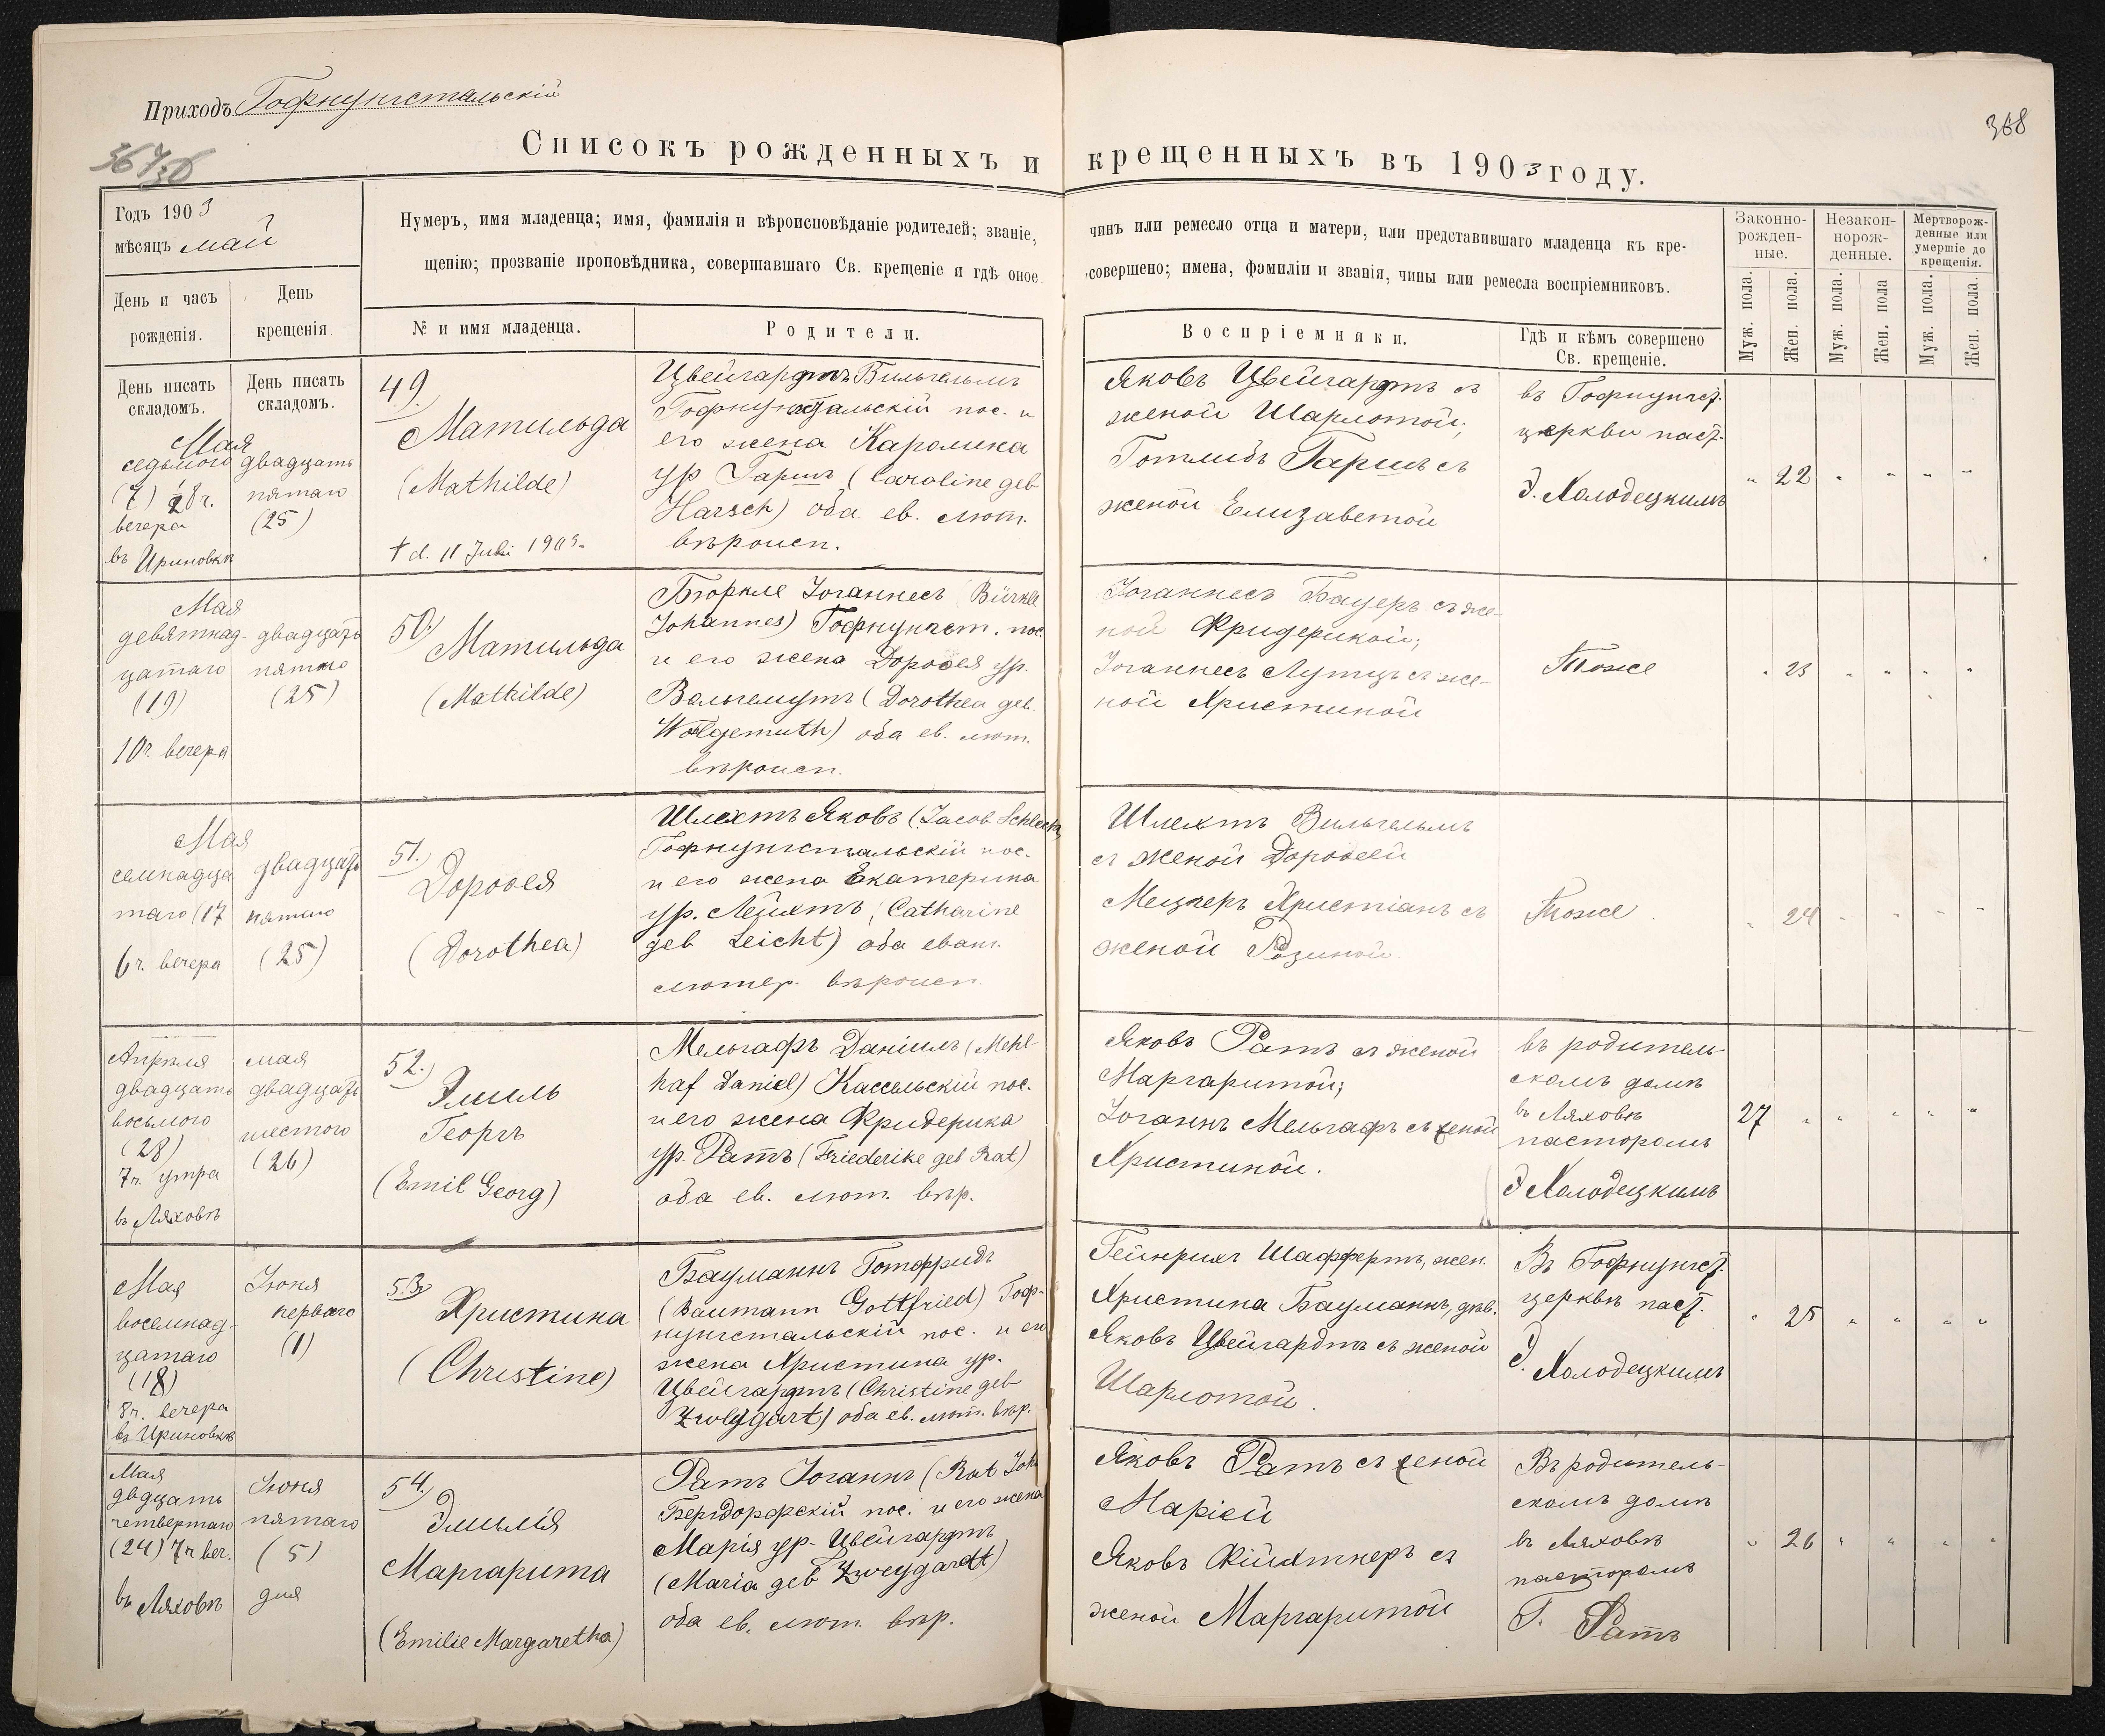 Приходъ Гофнунгстальскій
368
Списокъ рожденныхъ и крещенныхъ въ 1903 году.
Годъ 1903
мѣсяцъ май
Нумеръ, имя младенца; имя, фамилія и вѣроисповѣданіе родителей; званіе, чинъ или ремесло отца и матери, или представившаго младенца къ кре-
щенію; прозваніе проповѣдника, совершавшаго Св. крещеніе и гдѣ оное совершено; имена, фамиліи и званія, чины или ремесла воспріемниковъ.
Законно-
рожден-
ные.
Незакон-
норож-
денные.
Мертворож-
денные или
умершіе до
крещенія.
День и часъ
рожденія.
День
крещенія
№ и имя младенца.
Родители.
Воспріемники.
Гдѣ и кѣмъ совершено
Св. крещеніе.
Муж. пола.
Жен. пола.
Муж. пола.
Жен. пола
Муж. пола.
Жен. пола.
День писать
складомъ.
День писать
складомъ.
Мая
седьмого
(7) 8 ч.
вечера
въ Ириновкѣ
двадцать
пятаго
(25)
49.
Матильда
(Mathilde)
† d. 11 Juli 1903.
Цвейгардтъ Вильгельмъ
Гофнунгстальскій пос. и
его жена Каролина
ур Гаршъ (Caroline geb
Harsch) оба ев. лют.
вѣроисп.
Яковъ Цвейгардтъ съ
женой Шарлотой;
Готлибъ Гаршъ съ
женой Елизаветой
въ Гофнунгст.
церкви паст.
Э. Холодецкимъ
" 22 " " " "
Мая
девятнад-
цатаго
(19)
10 ч. вечера
двадцать
пятаго
(25)
50.
Матильда
(Mathilde)
Бюркле Іоганнесъ (Bürkle
Johannes) Гофнунгст. пос.
и его жена Доротея ур.
Вольгемутъ (Dorothea geb.
Wolgemuth) оба ев. лют.
вѣроисп.
Іоганнесъ Бауеръ съ же-
ной Фридерикой;
Іоганнесъ Лутцъ съ же-
ной Христиной
Тоже
" 23 " " " "
Мая
семнадца
таго (17
6 ч. вечера
двадцать
пятаго
(25)
51.
Доровея
(Dorothea)
Шлехтъ Яковъ (Jacob Schlecht
Гофнунгстальскій пос.
и его жена Екатерина
ур. Лейхтъ (Catharine
geb Leicht) оба еванг.
лютер. вѣроисп.
Шлехтъ Вильгельмъ
съ женой Доровеей
Мецгеръ Христіанъ съ
женой Розиной
Тоже
" 24 " " " "
Апрѣля
двадцать
восьмого
(28)
7 ч. утра
въ Ляховѣ
мая
двадцать
шестого
(26)
52.
Эмиль
Георгъ
(Emil Georg)
Мельгафъ Даніилъ (Mehl-
haf Daniel) Кассельскій пос.
и его жена Фридерика
ур. Ратъ (Friederike geb Rat)
оба ев. лют. вѣр.
Яковъ Ратъ съ женой
Маргаритой;
Іоганнъ Мельгафъ съ женой
Христиной.
въ родитель-
скомъ домѣ
въ Ляховѣ
пасторомъ
Э Холодецкимъ
27 " " " " "
Мая
восемнад-
цатаго
(18)
8 ч. вечера
въ Ириновкѣ
Іюня
перваго
(1)
53.
Христина
(Christine)
Бауманнъ Готфридъ
(Baumann Gottfried) Гоф-
нунгстальскій пос. и его
жена Христина ур.
Цвейгардтъ (Christine geb
Zweygart) оба ев. лют. вѣр.
Гейнрихъ Шаффертъ, жен.
Христина Бауманнъ, дѣв.
Яковъ Цвейгардтъ съ женой
Шарлотой.
Въ Гофнунгст.
церквѣ паст.
Э. Холодецкимъ
" 25 " " " "
Мая
двдцать
четвертаго
(24) 7 ч веч.
въ Ляховѣ
Іюня
пятаго
(5)
дня
54.
Эмилія
Маргарита
(Emilie Margaretha)
Ратъ Іоганнъ (Rat Joh
Бергдорфскій пос. и его жена
Марія ур. Цвейгардтъ
(Maria geb Zweygardt)
оба ев. лют. вѣр.
Яковъ Ратъ съ женой
Маріей
Яковъ Фійхтнеръ съ
женой Маргаритой
Въ родитель-
скомъ домѣ
въ Ляховѣ
пасторомъ
Г. Ратъ
" 26 " " " "